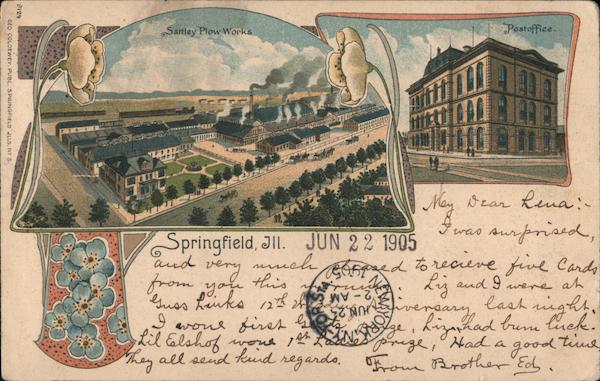 3124 GEO. COLDEWEY, PUBL. SPRINGFIELD, ILLS.
Sattley Plow Works
Postoffice.
Springfield, Ill.
JUN 22 1905
My Dear Lena:-
I was surprised,
and very much pleased to recieve five Cards
from you this Liz and I were at
Guss Links 12th anniversary last night.
I wone first Liz, had bum luck.
Lil Elshof wone 1st Prize, Had a good time
They all send kind regards. From Brother Ed.
NEW YORK, N.Y.
2-AM
JUN 25
STA.